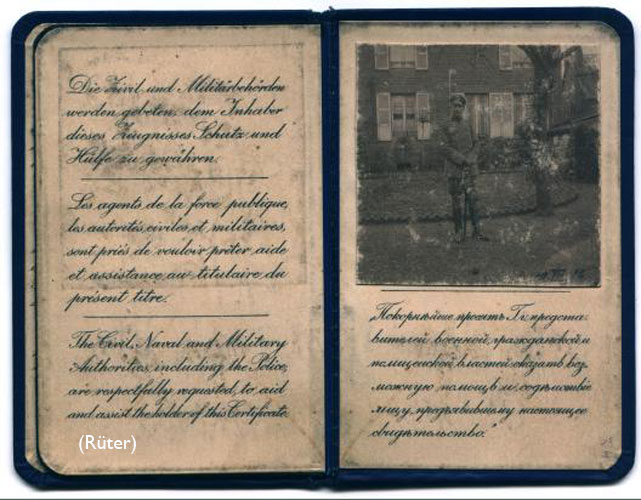 Die Zivil und Militärbehörden
werden gebeten, dem Inhaber
dieses Zeugnisses Schutz und
Hülfe zu gewähren.
Les agents de la force publique,
les autorités, civiles, et, militaires,
sont priés de vouloir prêter aide
et assistance au titulaire du
présent titre.
The Civil, Naval and Military
Authorities, including the Police,
are respectfully requested, to aid
and assist the holder of this Certificate.
(Rüter)
„Покорнѣйше просятъ Гг. предста-
вителей военной, гражданской и
полицейской властей оказать воз-
можную помощь и содѣйствіе
лицу, предъявившему настоящее
свидѣтельство."